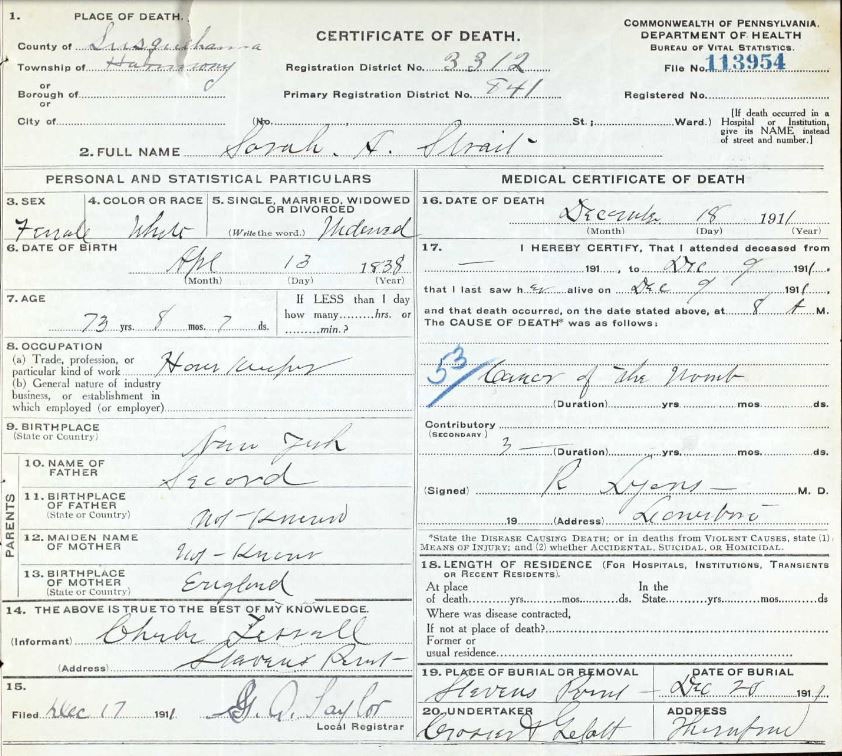 1. PLACE OF DEATH.
County of Susquehanna
Township of Harmony
or
Borough of
or
City of
CERTIFICATE OF DEATH.
Registration District No. 3312
Primary Registration District No. 841
(No. St; Ward.)
COMMONWEALTH OF PENNSYLVANIA.
DEPARTMENT OF HEALTH
BUREAU OF VITAL STATISTICS.
File No. 113954
Registered No.
[If death occurred in a
Hospital or Institution,
give its NAME instead
of street and number.]
2. FULL NAME Sarah. A. Strait
PERSONAL AND STATISTICAL PARTICULARS
3. SEX
Female
4. COLOR OR RACE
White
5. SINGLE, MARRIED, WIDOWED
OR DIVORCED
(Write the word.) Widowed
6. DATE OF BIRTH
Apl 13 1838
(Month) (Day) (Year)
7. AGE
73 yrs. 8 mos. 7 ds.
If LESS than 1 day
how many.........hrs. or
.........min.?
8. OCCUPATION
(a) Trade, profession, or
particular kind of work House keeper
(b) General nature of industry
business, or establishment in
which employed (or employer)
9. BIRTHPLACE
(State or Country)
New York
PARENTS
10. NAME OF
FATHER
Secord
11. BIRTHPLACE
OF FATHER
(State or Country)
not-Known
12. MAIDEN NAME
OF MOTHER
not-Known
13. BIRTHPLACE
OF MOTHER
(State or Country)
England
14. THE ABOVE IS TRUE TO THE BEST OF MY KNOWLEDGE.
(Informant)
(Address) Stevens Point
15.
Filed Dec 17 1911 G. A. Taylor
Local Registrar
MEDICAL CERTIFICATE OF DEATH
16. DATE OF DEATH
December 18 1911
(Month) (Day) (Year)
17. I HEREBY CERTIFY, That I attended deceased from
— 191 , to Dec 9 1911,
that I last saw her alive on Dec 9 1911,
and that death occurred, on the date stated above, at 8 A M.
The CAUSE OF DEATH* was as follows:
53 Cancer of the Womb
(Duration) yrs. mos. ds.
Contributory
(SECONDARY)
3 — (Duration) yrs. mos. ds.
(Signed) R Lyons M. D.
19 (Address)
*State the DISEASE CAUSING DEATH; or in deaths from VIOLENT CAUSES, state (1)
MEANS OF INJURY; and (2) whether ACCIDENTAL, SUICIDAL, OR HOMICIDAL.
18. LENGTH OF RESIDENCE (FOR HOSPITALS, INSTITUTIONS, TRANSIENTS
OR RECENT RESIDENTS).
At place
of death.......yrs.......mos.......ds.
In the
State.......yrs.......mos.......ds
Where was disease contracted,
If not at place of death?
Former or
usual residence
19. PLACE OF BURIAL OR REMOVAL
Stevens Point
DATE OF BURIAL
Dec 20 1911
20. UNDERTAKER
ADDRESS